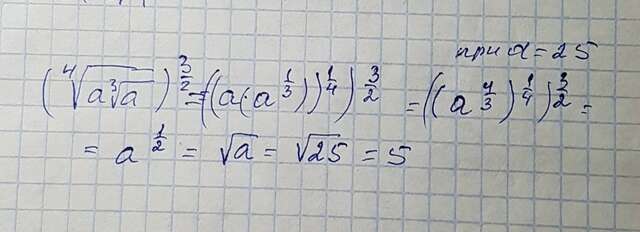 при a = 25
(∜(a∛a))^(3/2) = ((a·(a^(1/3)))^(1/4))^(3/2) = ((a^(4/3))^(1/4))^(3/2) =
= a^(1/2) = √a = √25 = 5